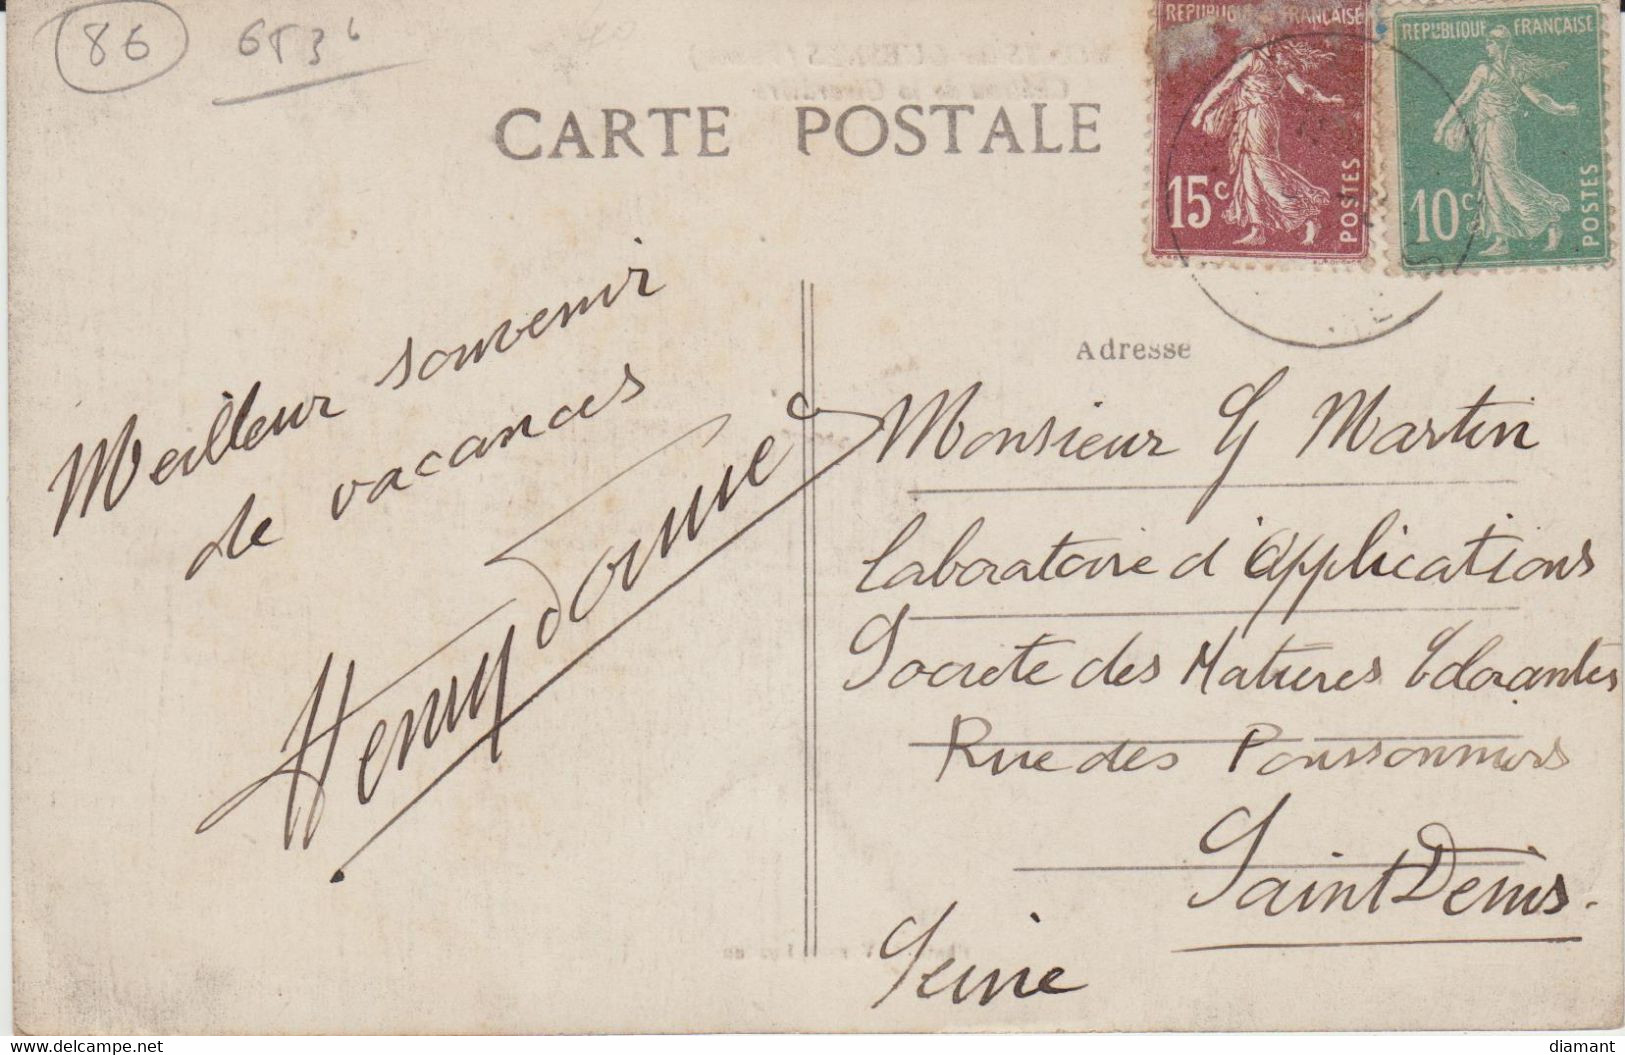 86
6T3
CARTE POSTALE
REPUBLIQUE FRANÇAISE
15c
POSTES
REPUBLIQUE FRANÇAISE
10c
POSTES
Adresse
Meilleur souvenir
de vacances
Henry
Monsieur G Martin
Laboratoire d'applications
Societe des Matieres Colorantes
Rue des Poissonniers
Saint Denis.
Seine
www.delcampe.net
diamant